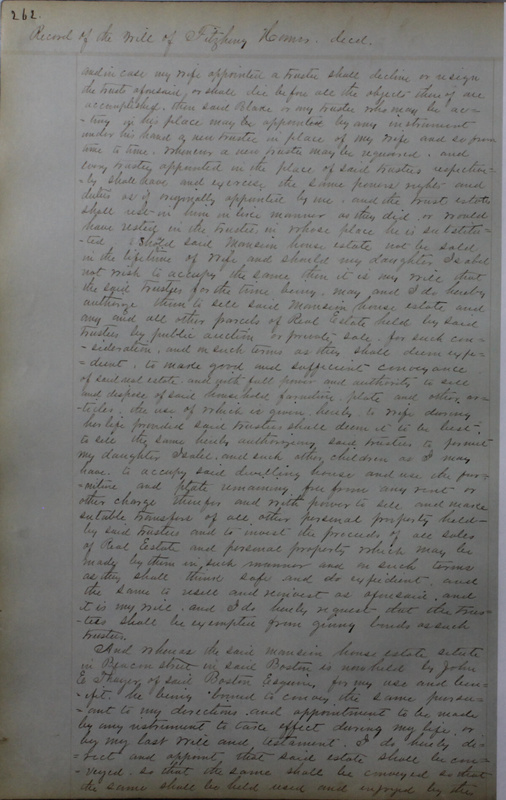 262.
Record of the Will of Fitzhenry Homer. decd.
and in case my wife appointed a trustee shall decline or resign
the trust aforesaid, or shall die before all the objects thereof are
accomplished, then said Blake or any trustee who may be ac=
=ting in his place may be appointed by any instrument
under his hand a new trustee in place of my wife and so from
time to time. whenever a new trustee may be required. and
every trustee appointed in the place of said trustees respective=
=ly shall have and exercise the same powers rights and
duties as if originally appointed by me. and the trust estate
shall vest in him in like manner as they did. or would
have vested in the trustee in whose place he is substitu=
=ted. Should said Mansion house estate not be sold
in the lifetime of wife and should my daughter, Isabel
not wish to occupy the same then it is my will that
the said Trustees for the time being, may and I do hereby
authorize them to sell said Mansion house estate and
any and all other parcels of Real Estate held by said
trustees by public auction or private sale. for such con=
=sideration, and on such terms as they shall deem expe=
=dient. to make good and sufficient conveyance
of said real estate. and with full power and authority to sell
and dispose of said household furniture plate and other ar=
=ticles. the use of which is given hereby to wife during
her life provided said trustees shall deem it to be best.
to sell the same hereby authorizing said trustees to permit
my daughter Isabel. and such other children as I may
have. to occupy said dwelling house and use the fur=
=niture and plate remaining free from any rent or
other charge therefor and with power to sell and make
suitable transfers of all other personal property held
by said trustees and to invest the proceeds of all sales
of Real Estate and personal property which may be
made by them in such manner and on such terms
as they shall think safe and do expedient. and
the same to resell and reinvest as aforesaid. and
it is my will. and I do hereby request that the trus=
=tees shall be exempted from giving bonds as such
trustees.
And whereas the said mansion house estate situte
in Beacon street in said Boston is now held by John
E Thayer of said Boston Esquire, for my use and ben=
=efit. he being bound to convey the same pursu=
=ant to my directions and appointment to be made
by any instrument to take effect during my life or
by my last will and testament. I do hereby di=
=rect and appoint, that said estate shall be con=
=veyed. so that the same shall be conveyed so that
the same shall be held used and enjoyed by the